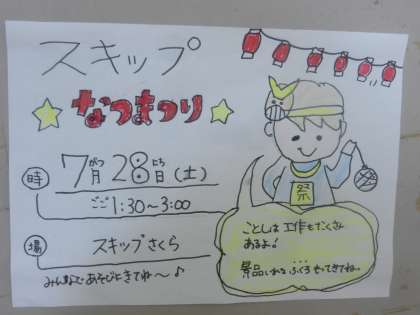 スキップ
なつまつり
時 7がつ月28にち日(土)
ごご1:30~3:00
場 スキップさくら
みんなであそびにきてね~♪
祭
ことしは工作もたくさん
あるよ!
景品 ふくろ もってきてね。